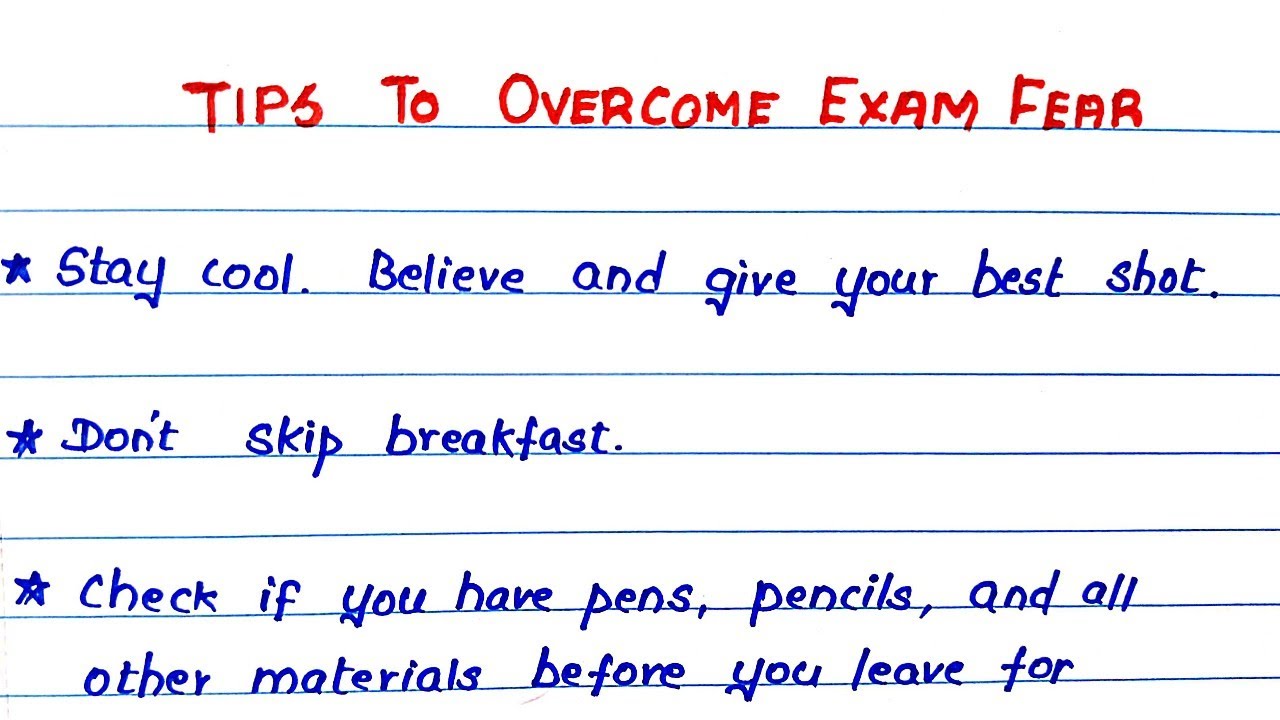 TIPS TO OVERCOME EXAM FEAR
★ Stay cool. Believe and give your best shot.
★ Don't skip breakfast.
★ Check if you have pens, pencils, and all
other materials before you leave for